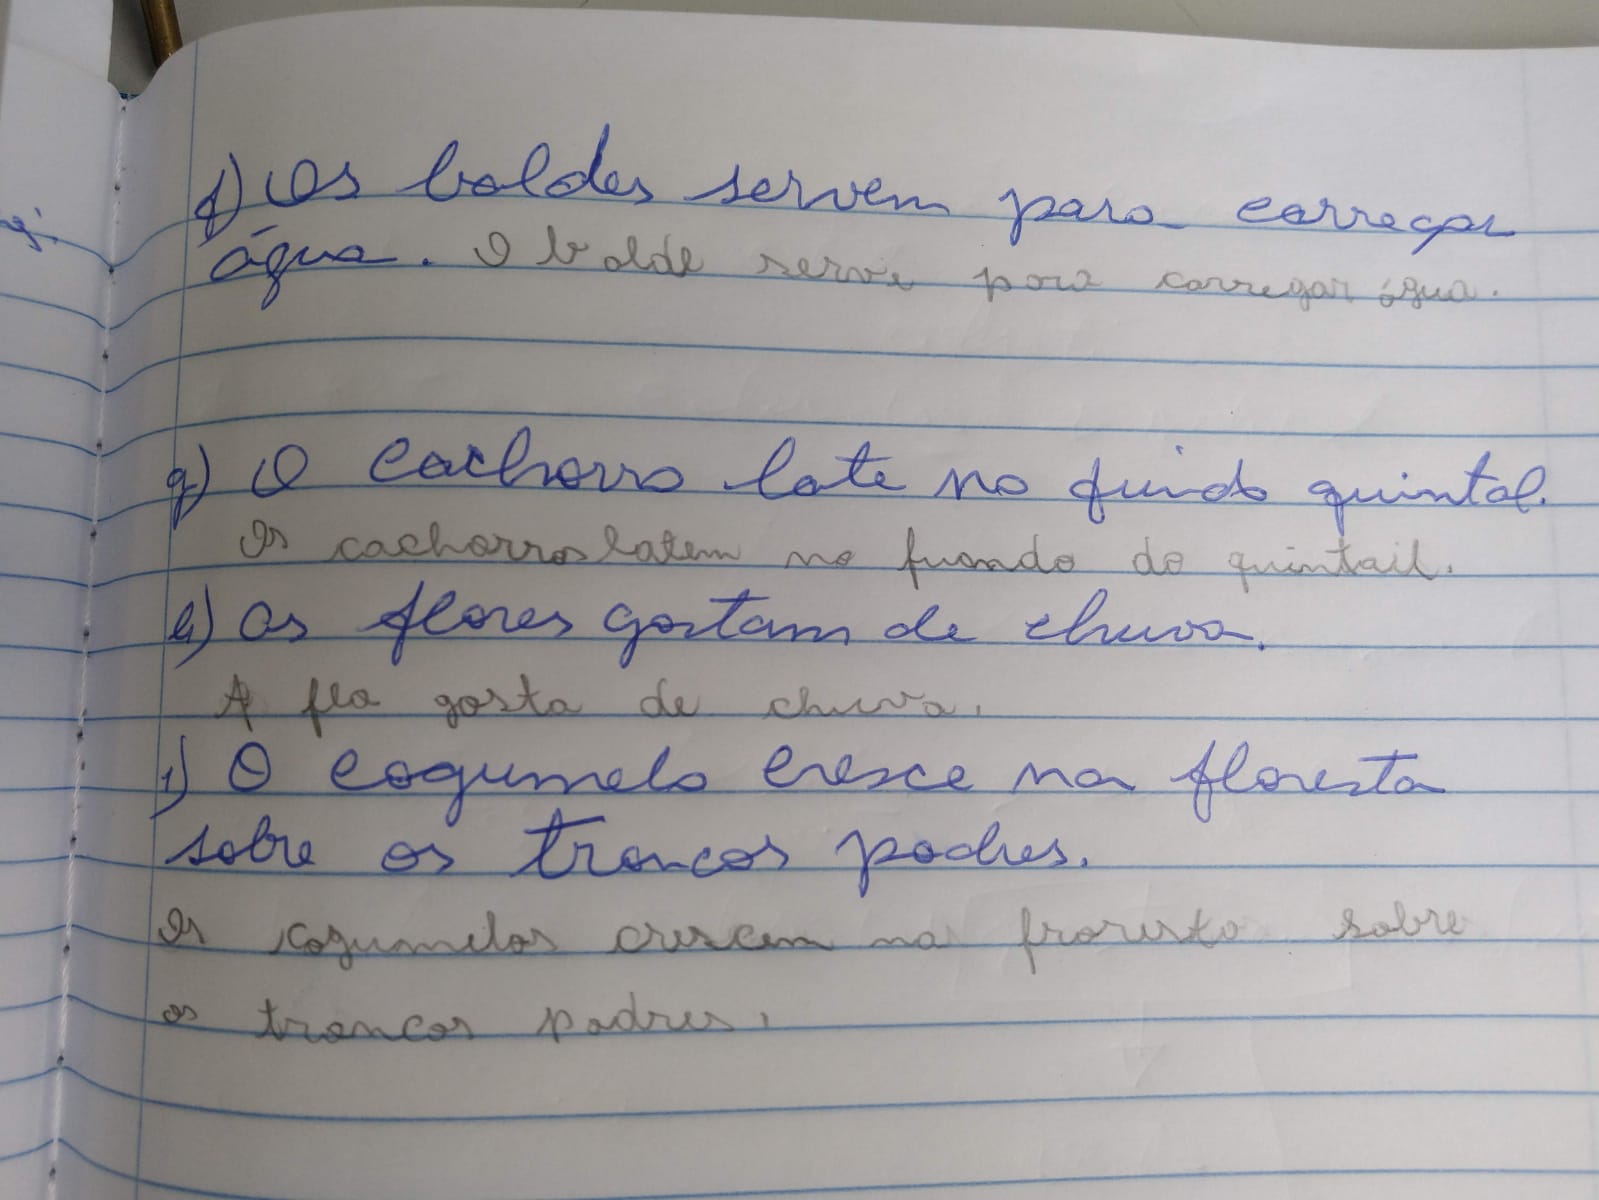 f) Os baldes servem para carregar
água. O balde serve para carregar água.
g) O cachorro late no fundo quintal.
Os cachorros latem no fuondo do quintail.
h) As flores gostam de chuva.
A floa gosta de chuva.
i) O cogumelo cresce na floresta
sobre os troncos podres.
Os cogumelos crescem na froresta sobre
os troncos podres.